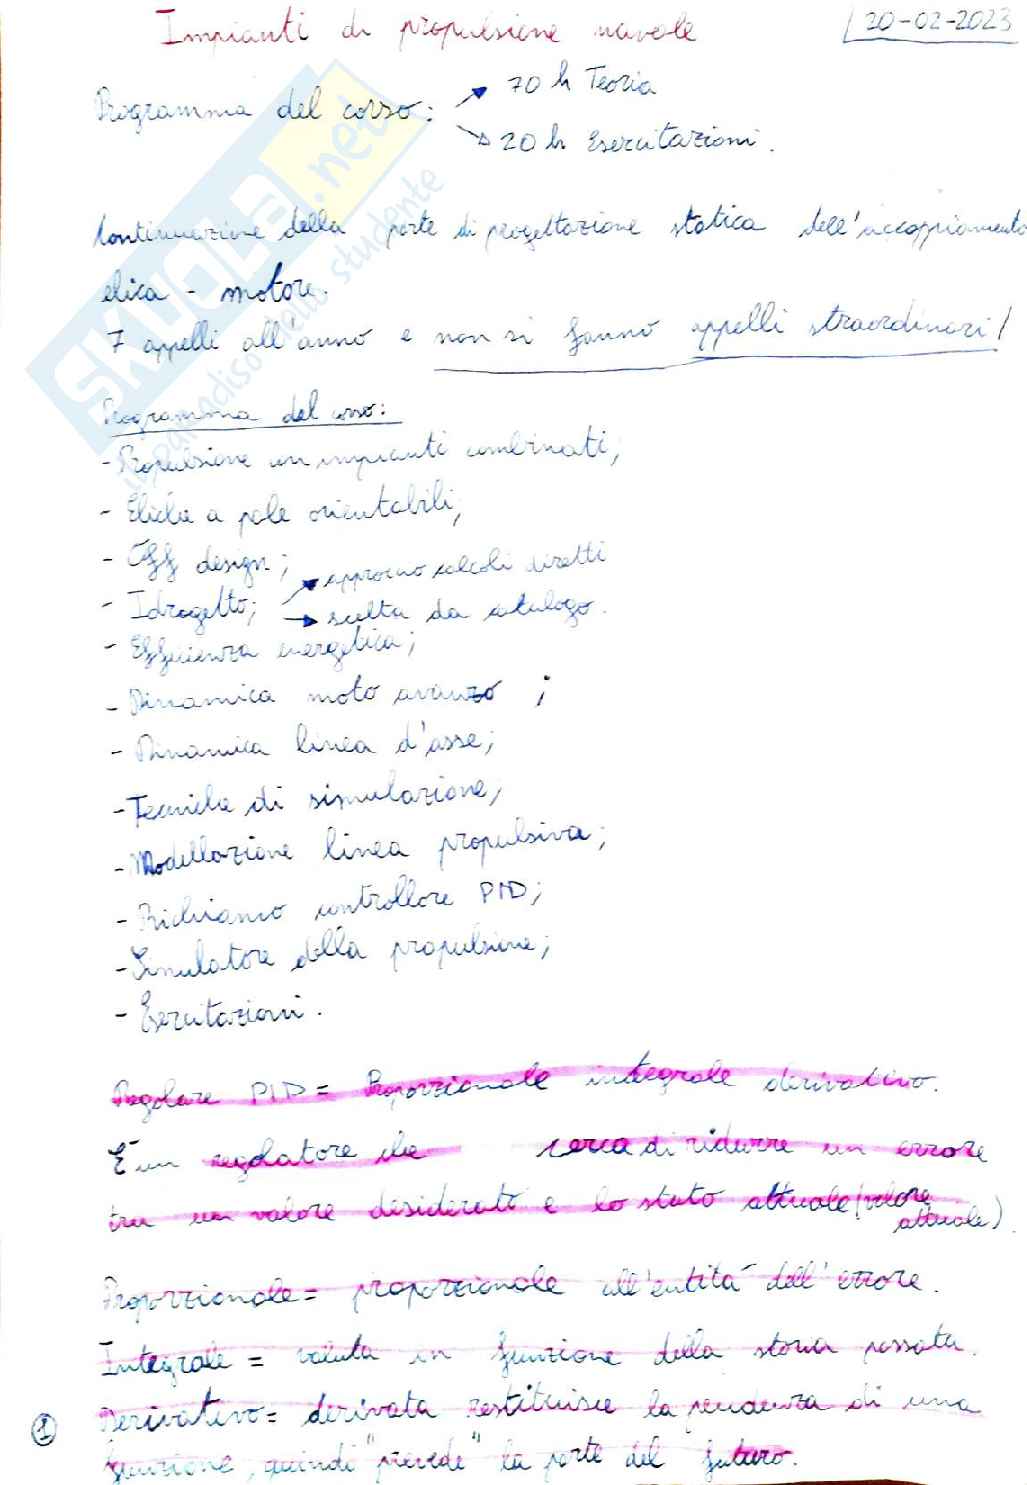 Impianti di propulsione navale
20-02-2023
Programma del corso: 70 h Teoria
20 h Esercitazioni.
Continuazione della parte di progettazione statica dell'accoppiamento
elica - motore.
7 appelli all'anno e non si fanno appelli straordinari!
Programma del corso:
- Propulsione con impianti combinati;
- Eliche a pale orientabili;
- Off design;
- Idrogetto; approccio calcoli diretti
scelta da catalogo.
- Efficienza energetica;
- Dinamica moto avanzo ;
- Dinamica linea d'asse;
- Tecniche di simulazione;
- Modellazione linea propulsiva;
- Richiamo controllore PID;
- Simulatore della propulsione;
- Esercitazioni.
Regolare PID = Proporzionale integrale derivativo.
È un regolatore che cerca di ridurre un errore
tra un valore desiderato e lo stato attuale (valore
attuale)
Proporzionale = proporzionale all'entità dell'errore.
Integrale = valuta in funzione della storia passata.
Derivativo = derivata restituisce la pendenza di una
funzione, quindi "prevede" la parte del futuro.
1
SKUOLA.net
il paradiso dello studente